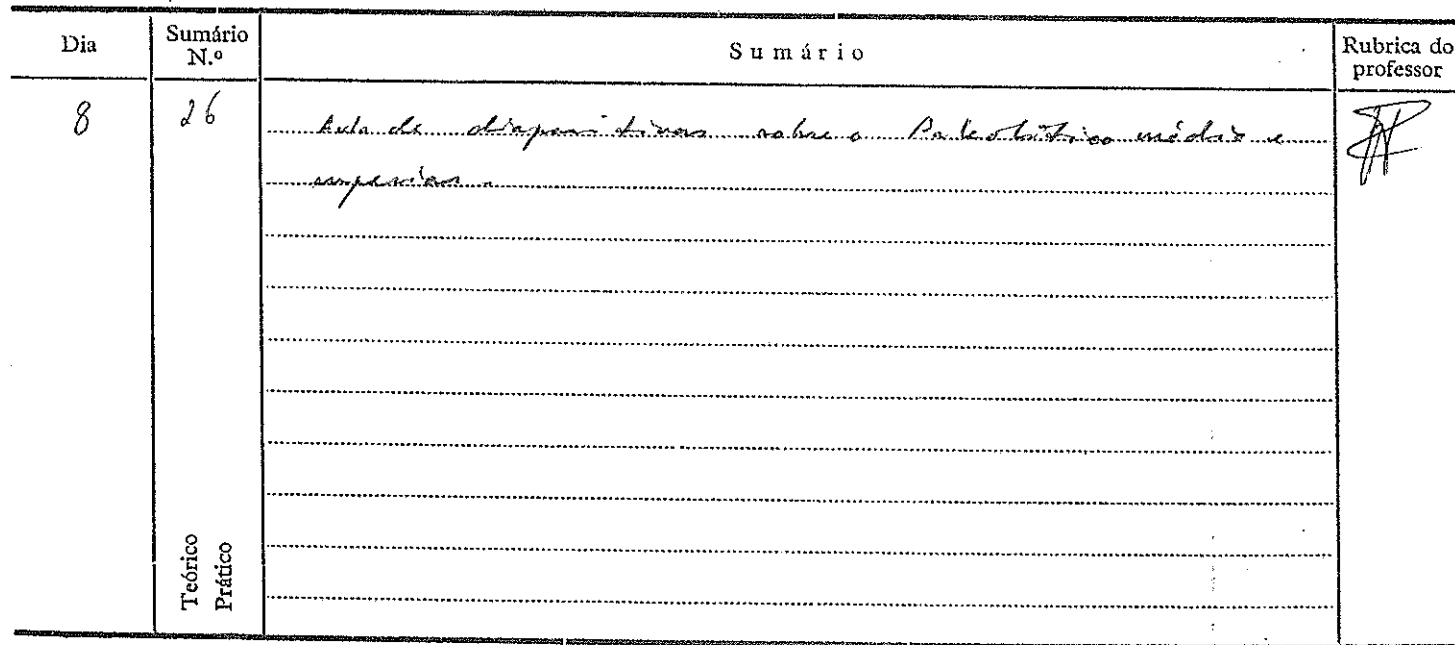 Dia
Sumário N.º
Sumário
Rubrica do professor
8
26
Aula de diapositivos sobre o Paleolítico médio e
superior.
Teórico
Prático